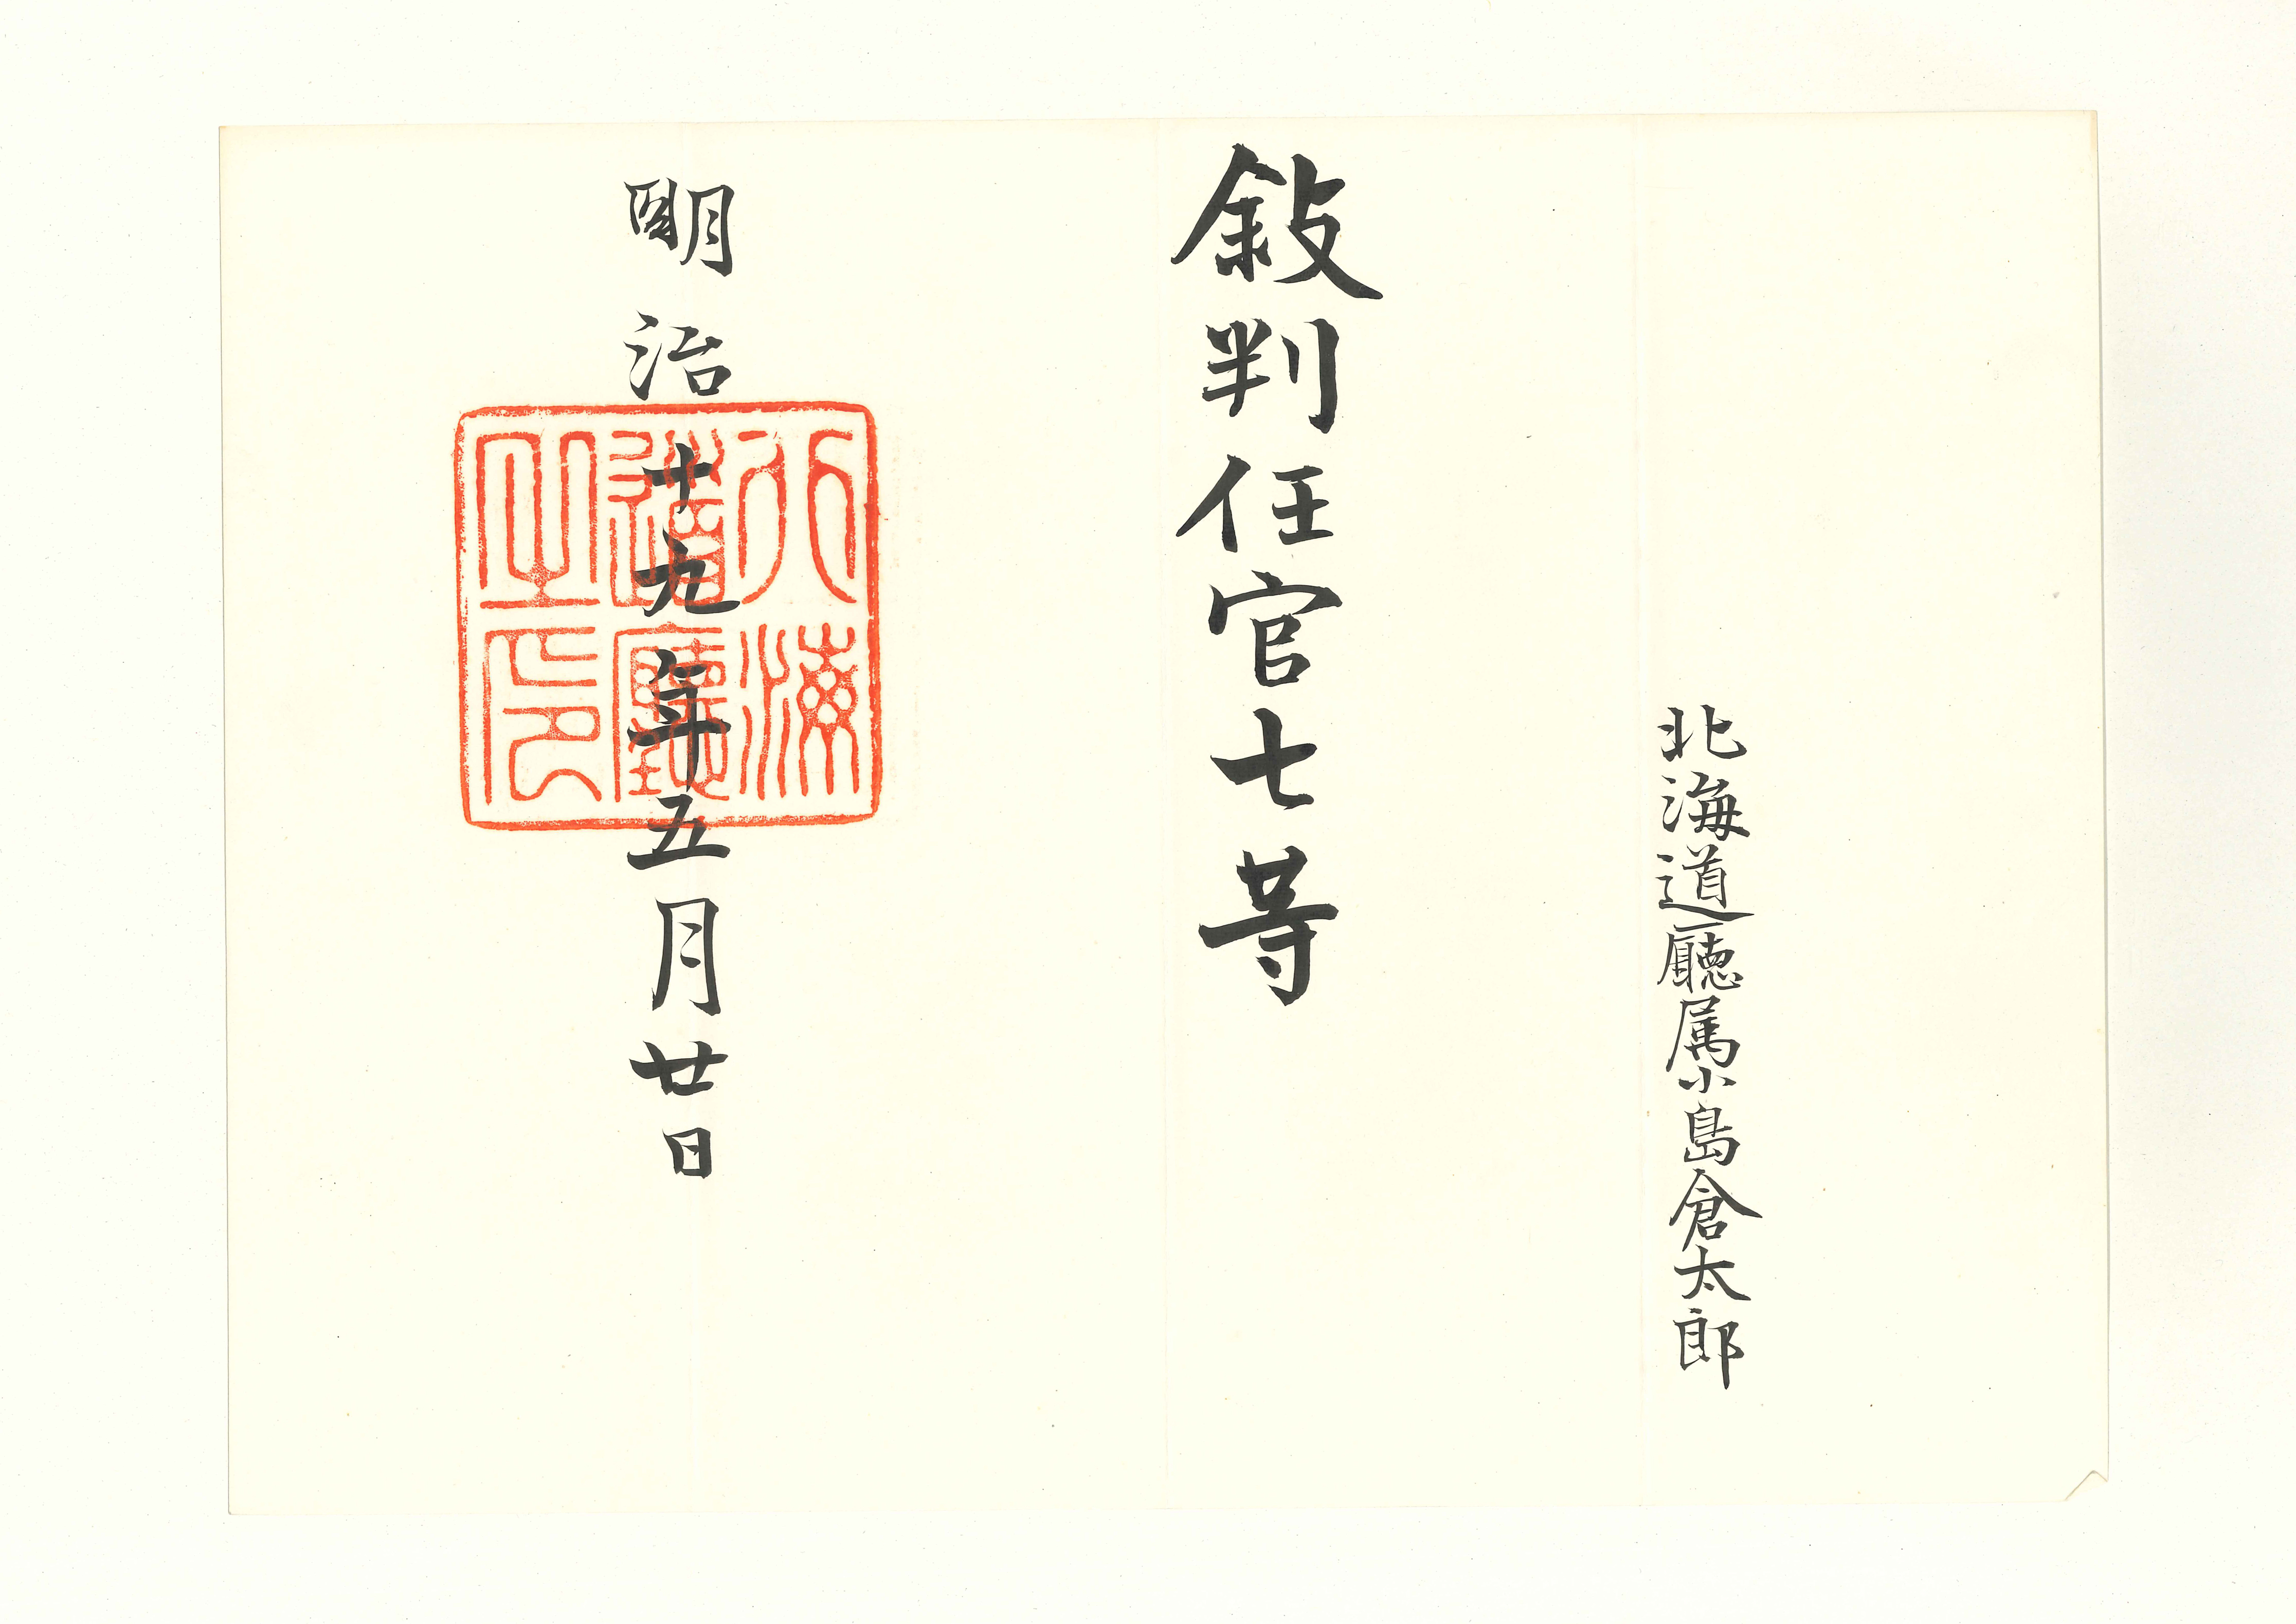 北海道廳属小島倉太郎
敍判任官七等
明治十九年五月廿日
北海道廳之印